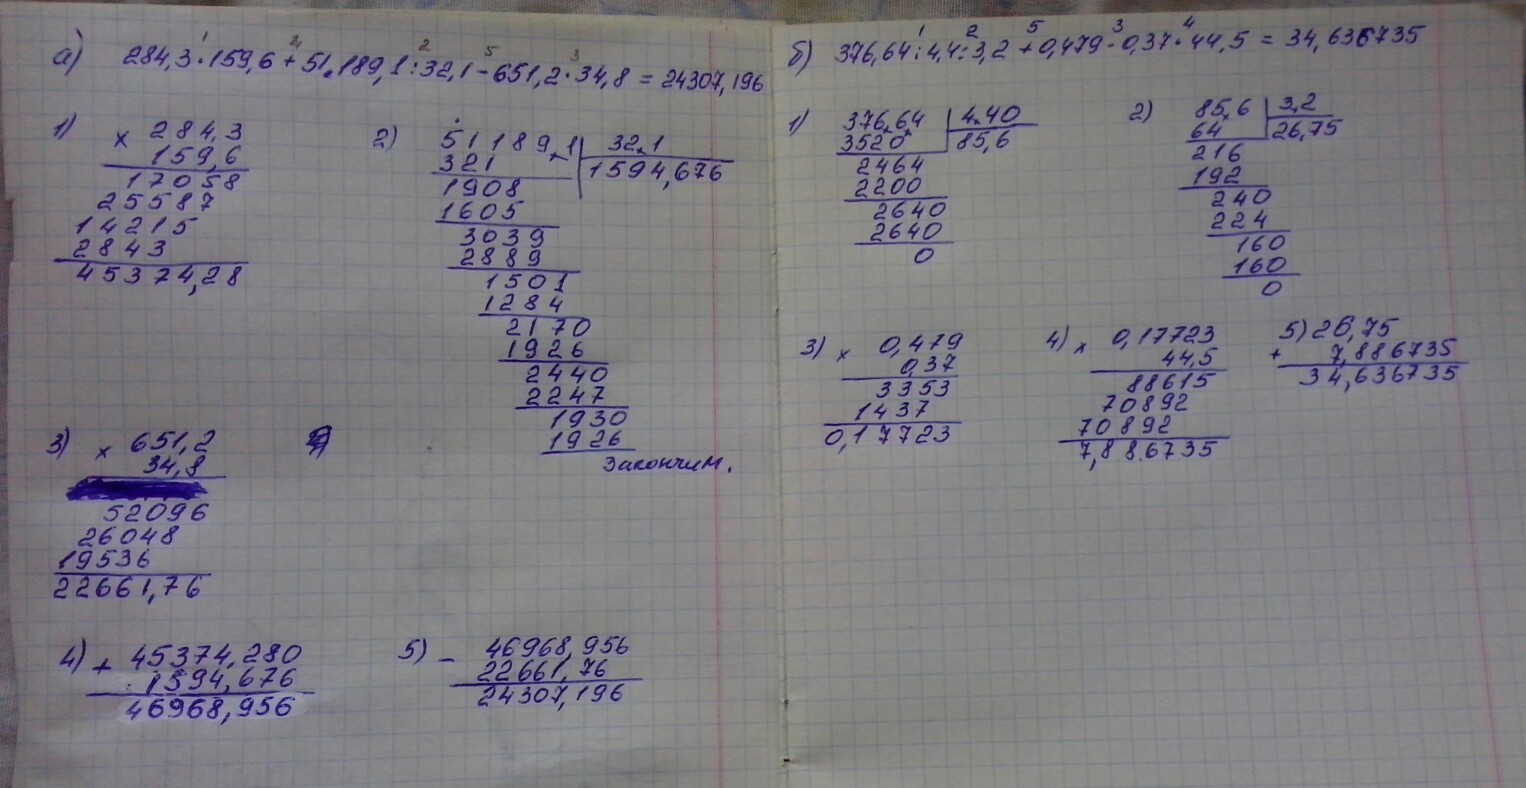 а) 284,3·159,6+51.189,1:32,1-651,2·34,8=24307,196
1 4 2 5 3
1)
× 284,3
159,6
17058
25587
14215
2843
45374,28
2)
51189,1 | 32,1
321 | 1594,676
1908
1605
3039
2889
1501
1284
2170
1926
2440
2247
1930
1926
закончим.
3)
× 651,2
34,8
52096
26048
19536
22661,76
4) + 45374,280
1594,676
46968,956
5) - 46968,956
22661,76
24307,196
б) 376,64:4,4:3,2+0,479·0,37·44,5=34,636735
1 2 5 3 4
1)
376,64 | 4,40
3520 | 85,6
2464
2200
2640
2640
0
2)
85,6 | 3,2
64 | 26,75
216
192
240
224
160
160
0
3) × 0,479
0,37
3353
1437
0,17723
4) × 0,17723
44,5
88615
70892
70892
7,886735
5) 26,75
+ 7,886735
34,636735